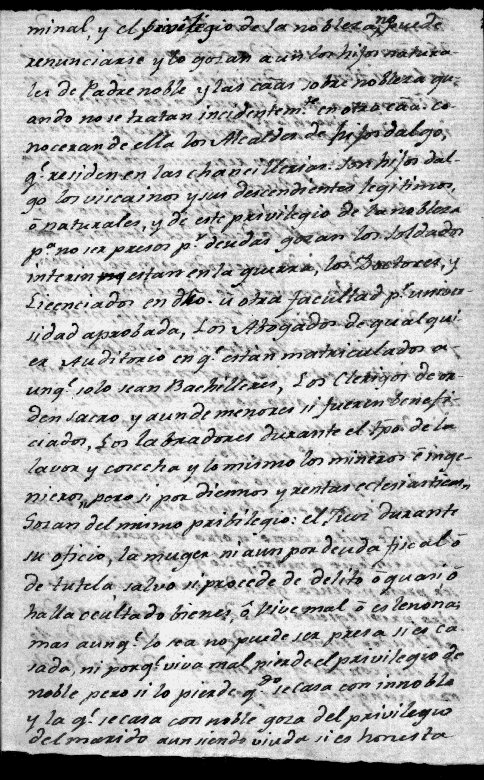 minal, y el privilegio de la nobleza no puede
renunciarse y lo gozan aun los hijos natura
les de Padre noble y las cãas sobre nobleza qu
ando no se tratan incidentem.te en otra cãa. co
noceran de ella los Alcaldes de fijos dalgo,
q.e residen en las chancillerias. son hijos dal
go los viscainos y sus descendientes legitimos,
õ naturales, y de este privilegio de la nobleza
p.a no ser presos p.r deudas gozan los soldados
interin estan en la guerra, los Doctores, y
Licenciados en dro. u otra facultad p.r univer
sidad aprobada, Los Abogados de qualqui
er Auditorio en q.e estan matriculados a
unq.e solo sean Bachilleres, Los Clerigos de or
den sacro y aun de menores si fueren benefi
ciados, Los labradores durante el tpo. de la
lavor y cosecha y lo mismo los mineros ê inge
nieros, pero si por diesmos y rentas eclesiasticas,
Gozan del mismo pribilegio: el Juez durante
su oficio, la muger ni aun por deuda fiscal ô
de tutela salvo si procede de delito ô quasi ô
halla ocultado bienes, ô vive mal ô es lenona;
mas aunq.e lo sea no puede ser presa si es ca
sada, ni porq.e viva mal pierde el privilegio de
noble pero si lo pierde q.do se casa con innoble
y la q.e se casa con noble goza del privilegio
del marido aun siendo viuda si es honesta